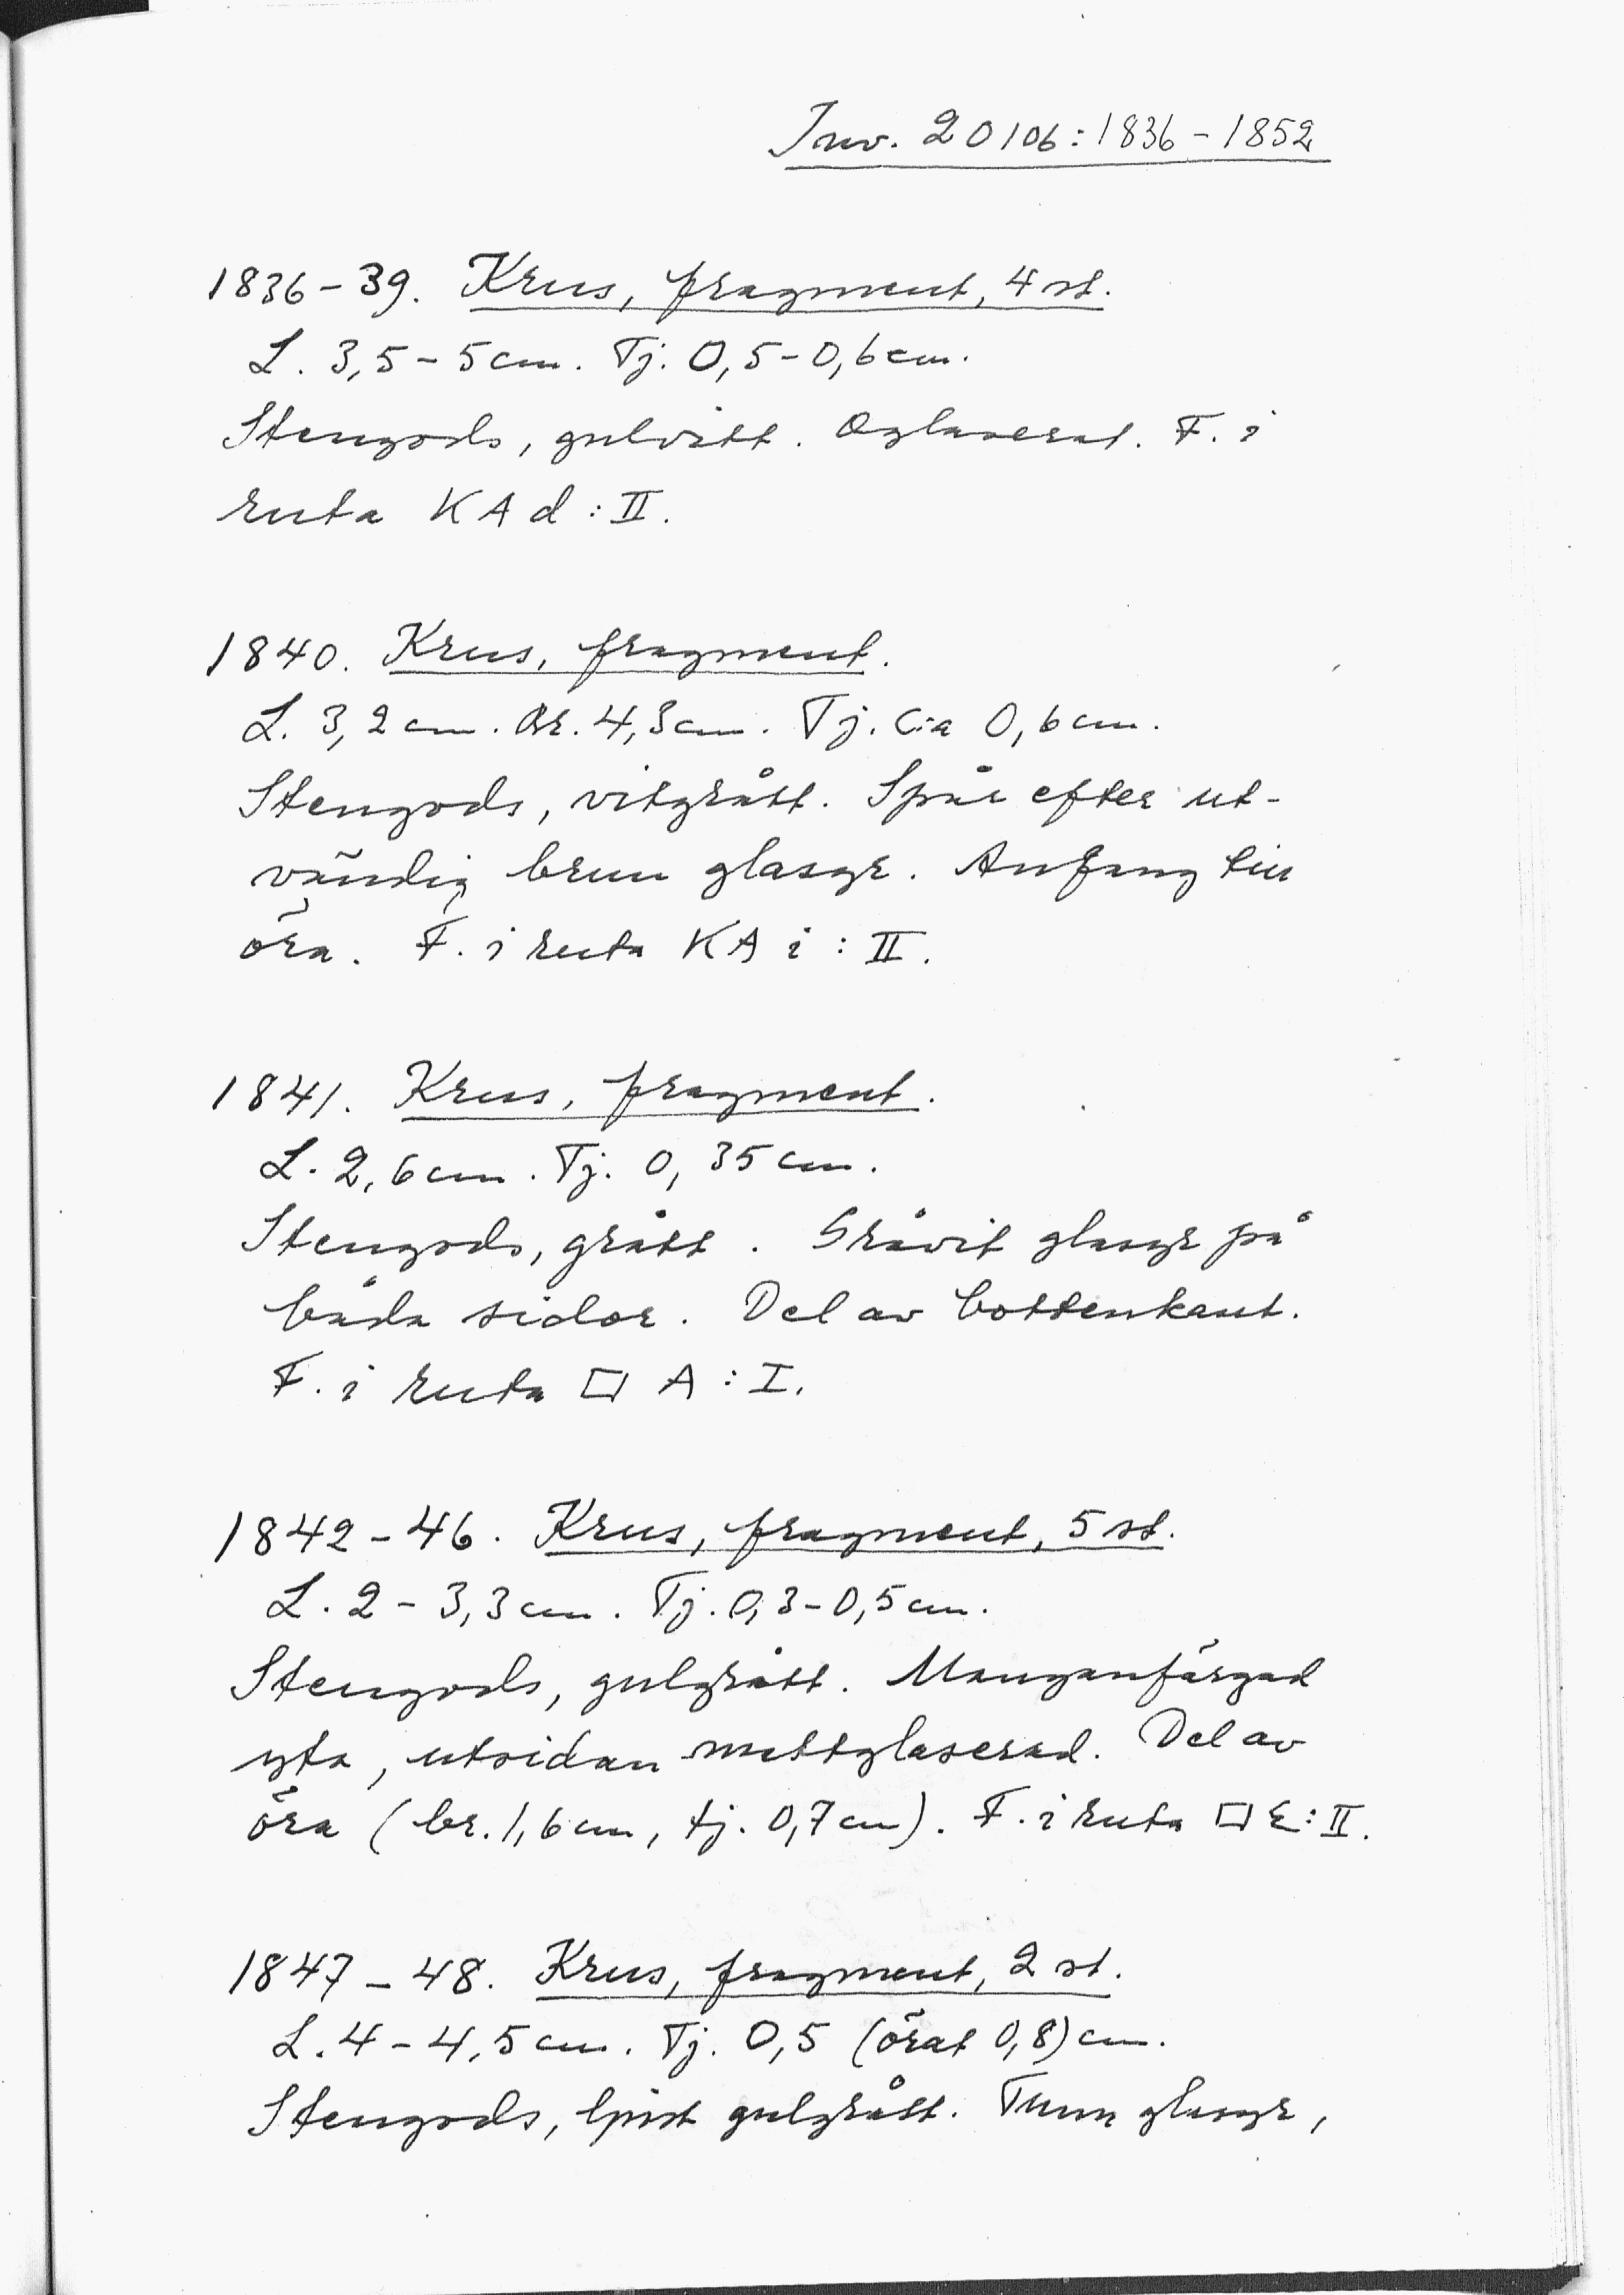 Inv. 20106:1836-1852
1836-39. Krus, fragment, 4 st.
L. 3,5-5 cm. Tj. 0,5-0,6 cm.
Stengods, gulvitt. Oglaserat. F. i
ruta KA d:II.
1840. Krus, fragment.
L. 3,2 cm. Br. 4,3 cm. Tj. c:a 0,6 cm.
Stengods, vitgrått. Spår efter ut-
vändig brun glasyr. Anfang till
öra. F. i ruta KA i:II.
1841. Krus, fragment.
L. 2,6 cm. Tj. 0,35 cm.
Stengods, grått. Gråvit glasyr på
båda sidor. Del av bottenkant.
F. i ruta □ A:I.
1842-46. Krus, fragment, 5 st.
L. 2-3,3 cm. Tj. 0,3-0,5 cm.
Stengods, gulgrått. Manganfärgad
yta, utsidan mattglaserad. Del av
öra (br. 1,6 cm, tj. 0,7 cm). F. i ruta □ E:II.
1847-48. Krus, fragment, 2 st.
L. 4-4,5 cm. Tj. 0,5 (örat 0,8) cm.
Stengods, ljust gulgrått. Tunn glasyr,